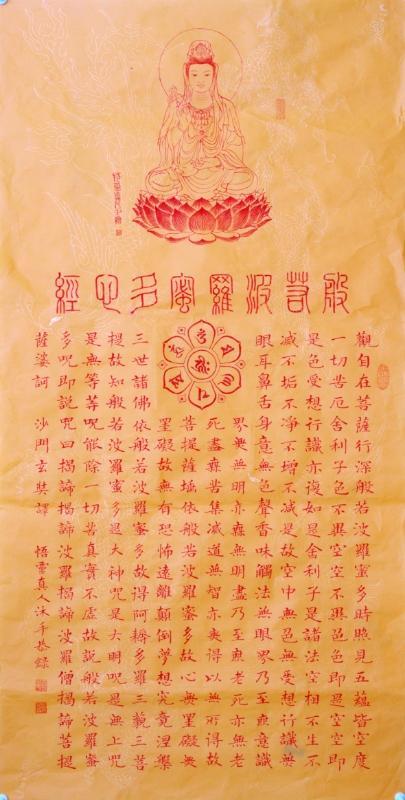 般若波羅蜜多心經
觀自在菩薩行深般若波羅蜜多時照見五蘊皆空度
一切苦厄舍利子色不異空空不異色色即是空空即
是色受想行識亦復如是舍利子是諸法空相不生不
滅不垢不淨不增不減是故空中無色無受想行識無
眼耳鼻舌身意無色聲香味觸法無眼界乃至無意識
界無無明亦無無明盡乃至無老死亦無老
死盡無苦集滅道無智亦無得以無所得故
菩提薩埵依般若波羅蜜多故心無罣礙無
罣礙故無有恐怖遠離顛倒夢想究竟涅槃
三世諸佛依般若波羅蜜多故得阿耨多羅三藐三菩
提故知般若波羅蜜多是大神咒是大明咒是無上咒
是無等等咒能除一切苦真實不虛故說般若波羅蜜
多咒即說咒曰揭諦揭諦波羅揭諦波羅僧揭諦菩提
薩婆訶 沙門玄奘譯 悟靈真人沐手恭錄